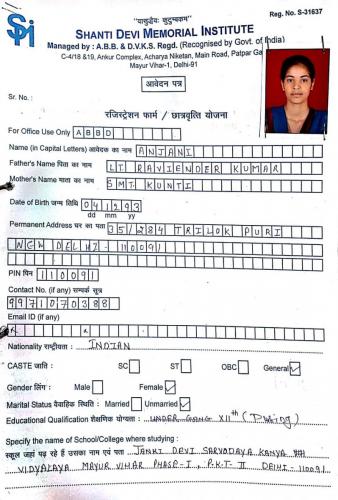 "वासुदेवः कुटुम्बकम्"
Reg. No. S-31637
SHANTI DEVI MEMORIAL INSTITUTE
Managed by : A.B.B. & D.V.K.S. Regd. (Recognised by Govt. of India)
C-4/18 &19, Ankur Complex, Acharya Niketan, Main Road, Patpar Ga
Mayur Vihar-1, Delhi-91
आवेदन पत्र
Sr. No. :
रजिस्ट्रेशन फार्म / छात्रवृत्ति योजना
For Office Use Only A B B D
Name (in Capital Letters) आवेदक का नाम ANJANI
Father's Name पिता का नाम LT RAVIENDER KUMAR
Mother's Name माता का नाम SMT KUNTI
Date of Birth जन्म तिथि 041293
dd mm yy
Permanent Address घर का पता 35/284 TRILOK PURI
NEW DELHI-110091
PIN पिन 110091
Contact No. (if any) सम्पर्क सूत्र
9971070388
Email ID (if any)
Nationality राष्ट्रीयता : INDIAN
CASTE जाति : SC ST OBC General ✓
Gender लिंग : Male Female ✓
Marital Status वैवाहिक स्थिति : Married Unmarried ✓
Educational Qualification शैक्षणिक योग्यता : UNDER GOING XIIth
Specify the name of School/College where studying :
स्कूल जहां पढ़ रहे हैं उसका नाम एवं पता JANKI DEVI SARVODAYA KANYA
VIDYALAYA MAYUR VIHAR PHASE-I, P.K.T-II DELHI-110091